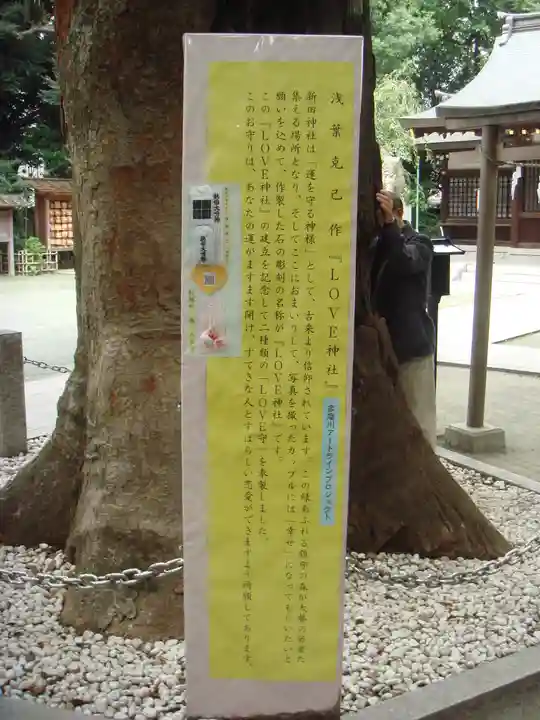 浅葉克己作『LOVE神社』
多摩川アートラインプロジェクト
新田神社は「運を守る神様」として、古来より信仰されています。この緑あふれる鎮守の森が大勢の若者た
集える場所となり、そしてここにおまいりして、写真を撮ったカップルには「幸せ」になってもらいたいと
願いを込めて、作製した石の彫刻の名称が『LOVE神社』です。
この『LOVE神社』の建立を記念して二種類の「LOVE守」を奉製しました。
このお守りは、あなたの運がますます開け、すてきな人とすばらしい恋愛ができますよう祈願してあります。